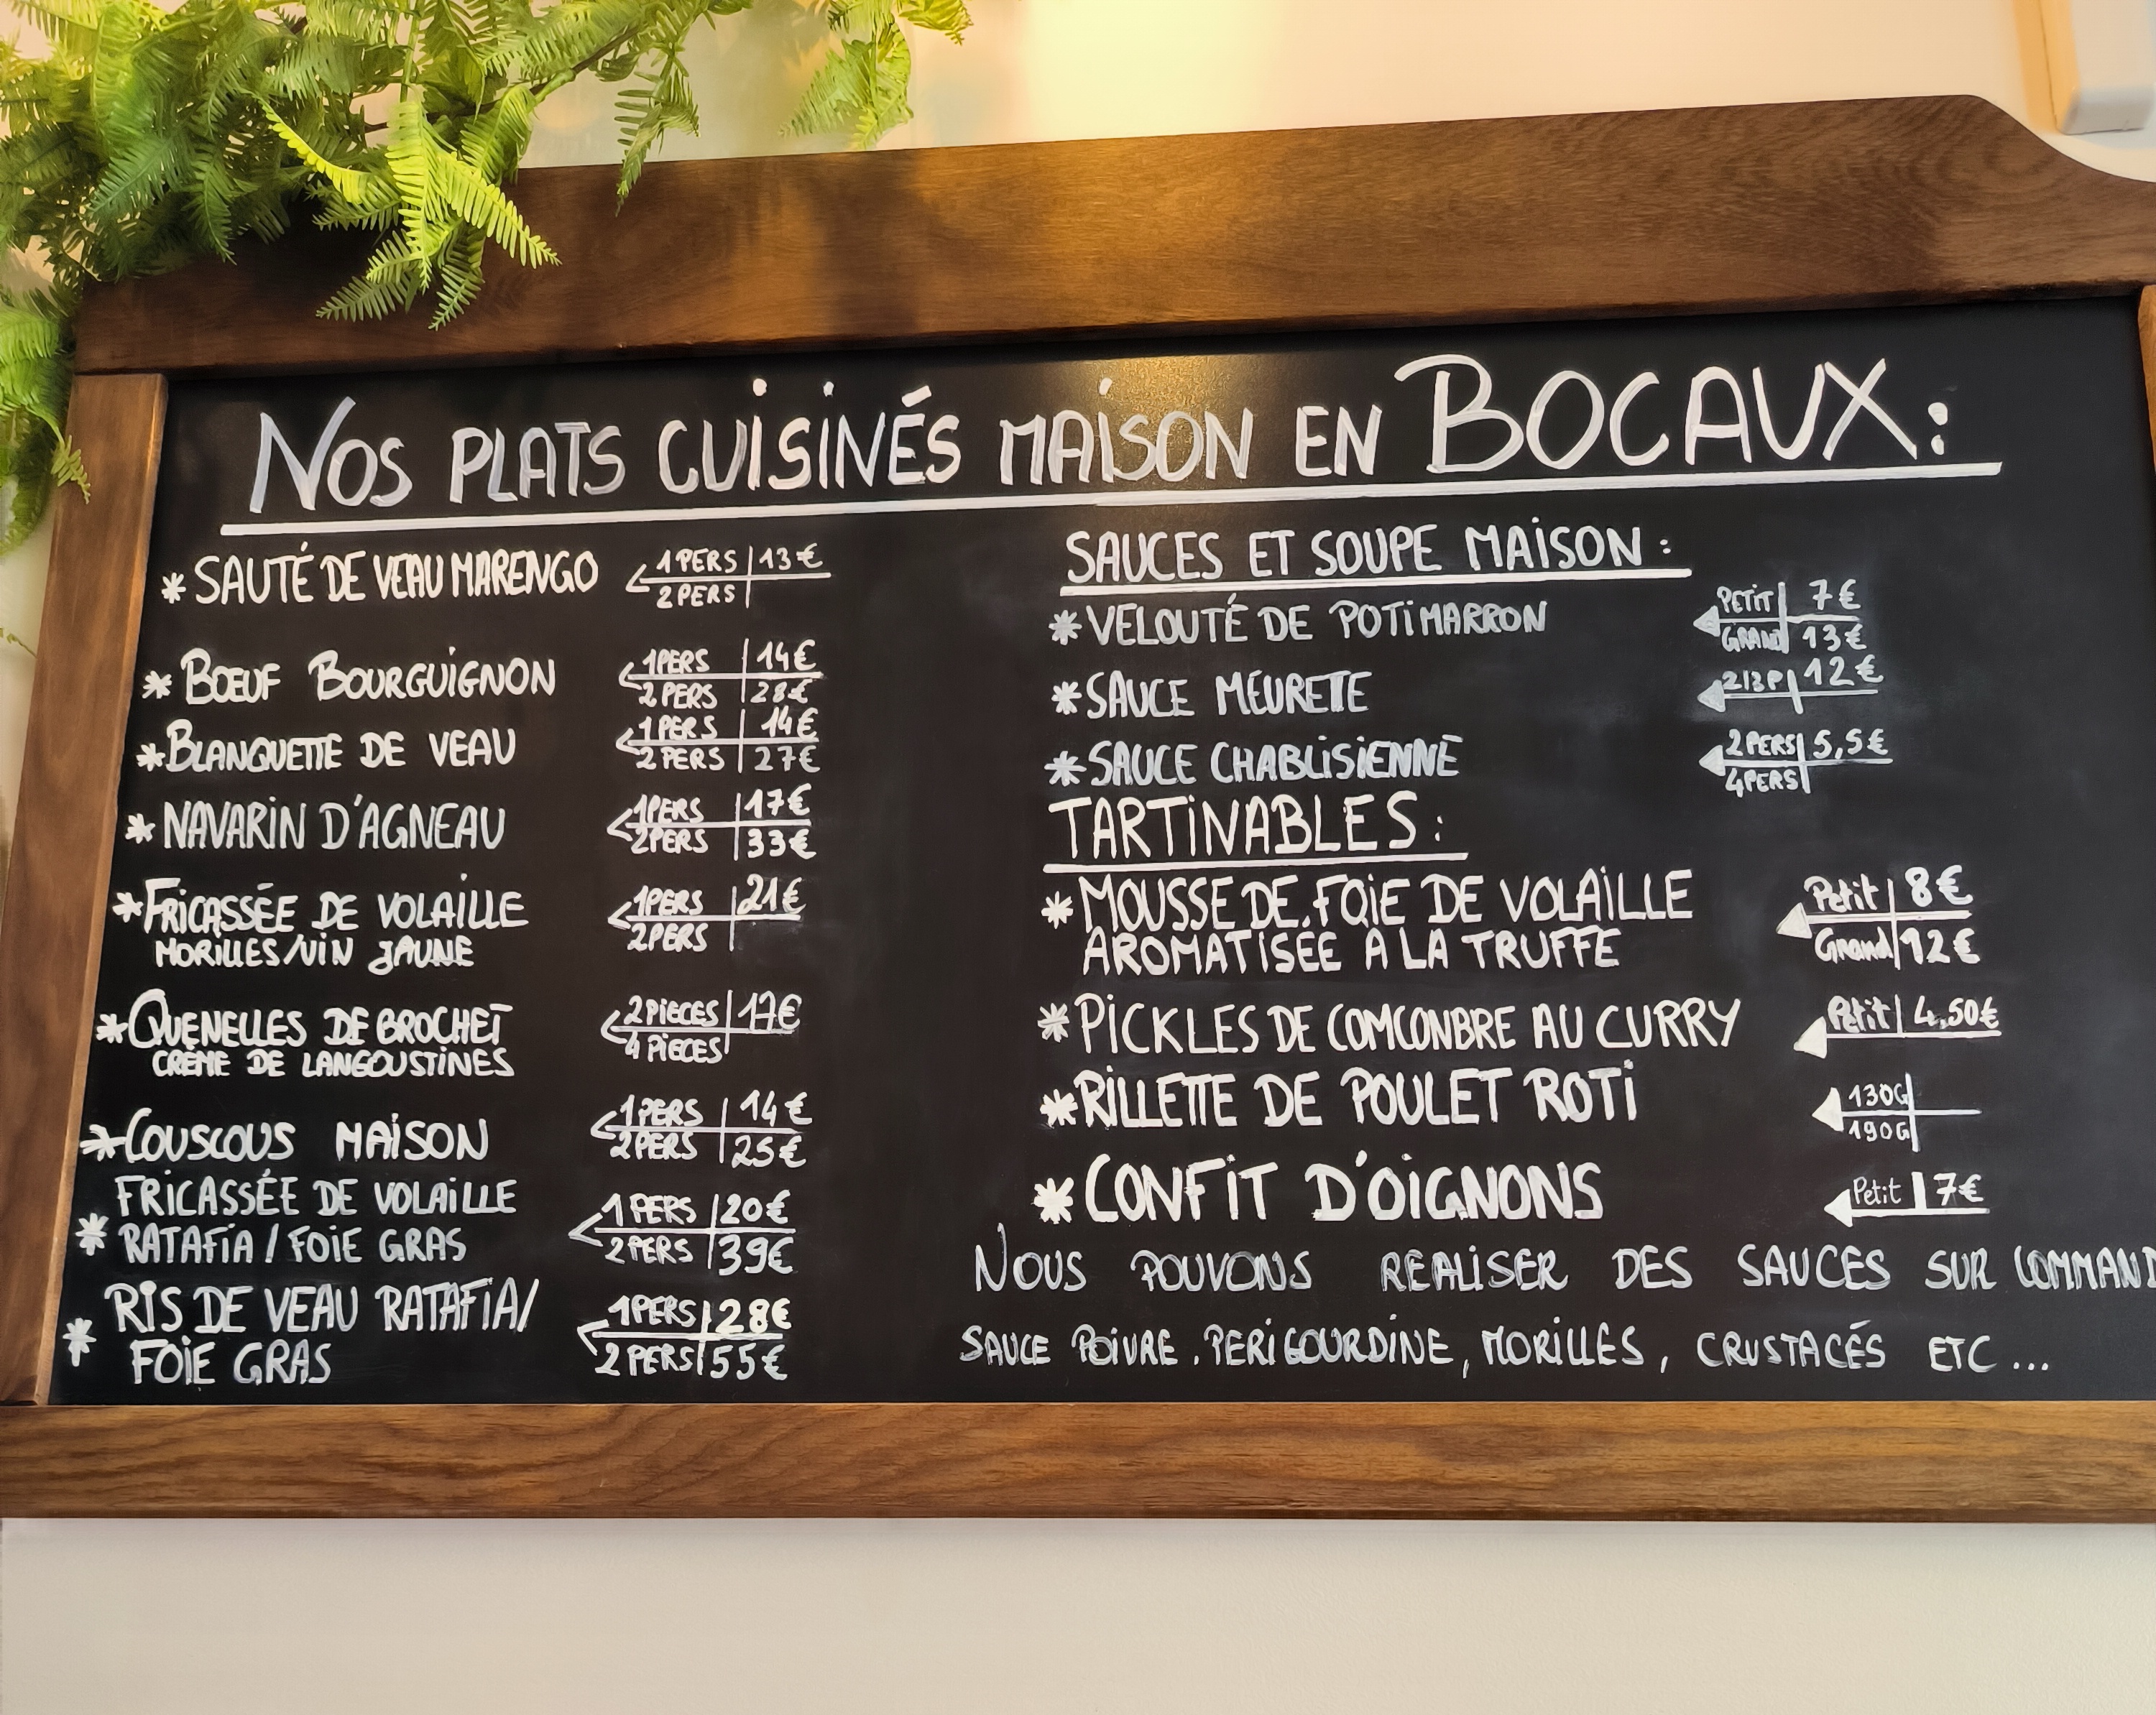 NOS PLATS CUISINÉS MAISON EN BOCAUX:
* SAUTÉ DE VEAU MARENGO
1 PERS 13€
2 PERS
* BŒUF BOURGUIGNON
1 PERS 14€
2 PERS 28€
* BLANQUETTE DE VEAU
1 PERS 14€
2 PERS 27€
* NAVARIN D'AGNEAU
1 PERS 17€
2 PERS 33€
* FRICASSÉE DE VOLAILLE
MORILLES/VIN JAUNE
1 PERS 21€
2 PERS
* QUENELLES DE BROCHET
CRÈME DE LANGOUSTINES
2 PIECES 17€
4 PIECES
* COUSCOUS MAISON
1 PERS 14€
2 PERS 25€
FRICASSÉE DE VOLAILLE
* RATAFIA / FOIE GRAS
1 PERS 20€
2 PERS 39€
* RIS DE VEAU RATAFIA/
FOIE GRAS
1 PERS 28€
2 PERS 55€
SAUCES ET SOUPE MAISON :
* VELOUTÉ DE POTIMARRON
PETIT 7€
GRAND 13€
* SAUCE MEURETTE
2/3P 12€
* SAUCE CHABLISIENNE
2 PERS 5,5€
4 PERS
TARTINABLES :
* MOUSSE DE FOIE DE VOLAILLE
AROMATISÉE À LA TRUFFE
Petit 8€
Grand 12€
* PICKLES DE COMCONBRE AU CURRY
Petit 4,50€
* RILLETTE DE POULET ROTI
130G
190G
* CONFIT D'OIGNONS
Petit 7€
NOUS POUVONS REALISER DES SAUCES SUR COMMAND
SAUCE POIVRE, PERIGOURDINE, MORILLES, CRUSTACÉS ETC...